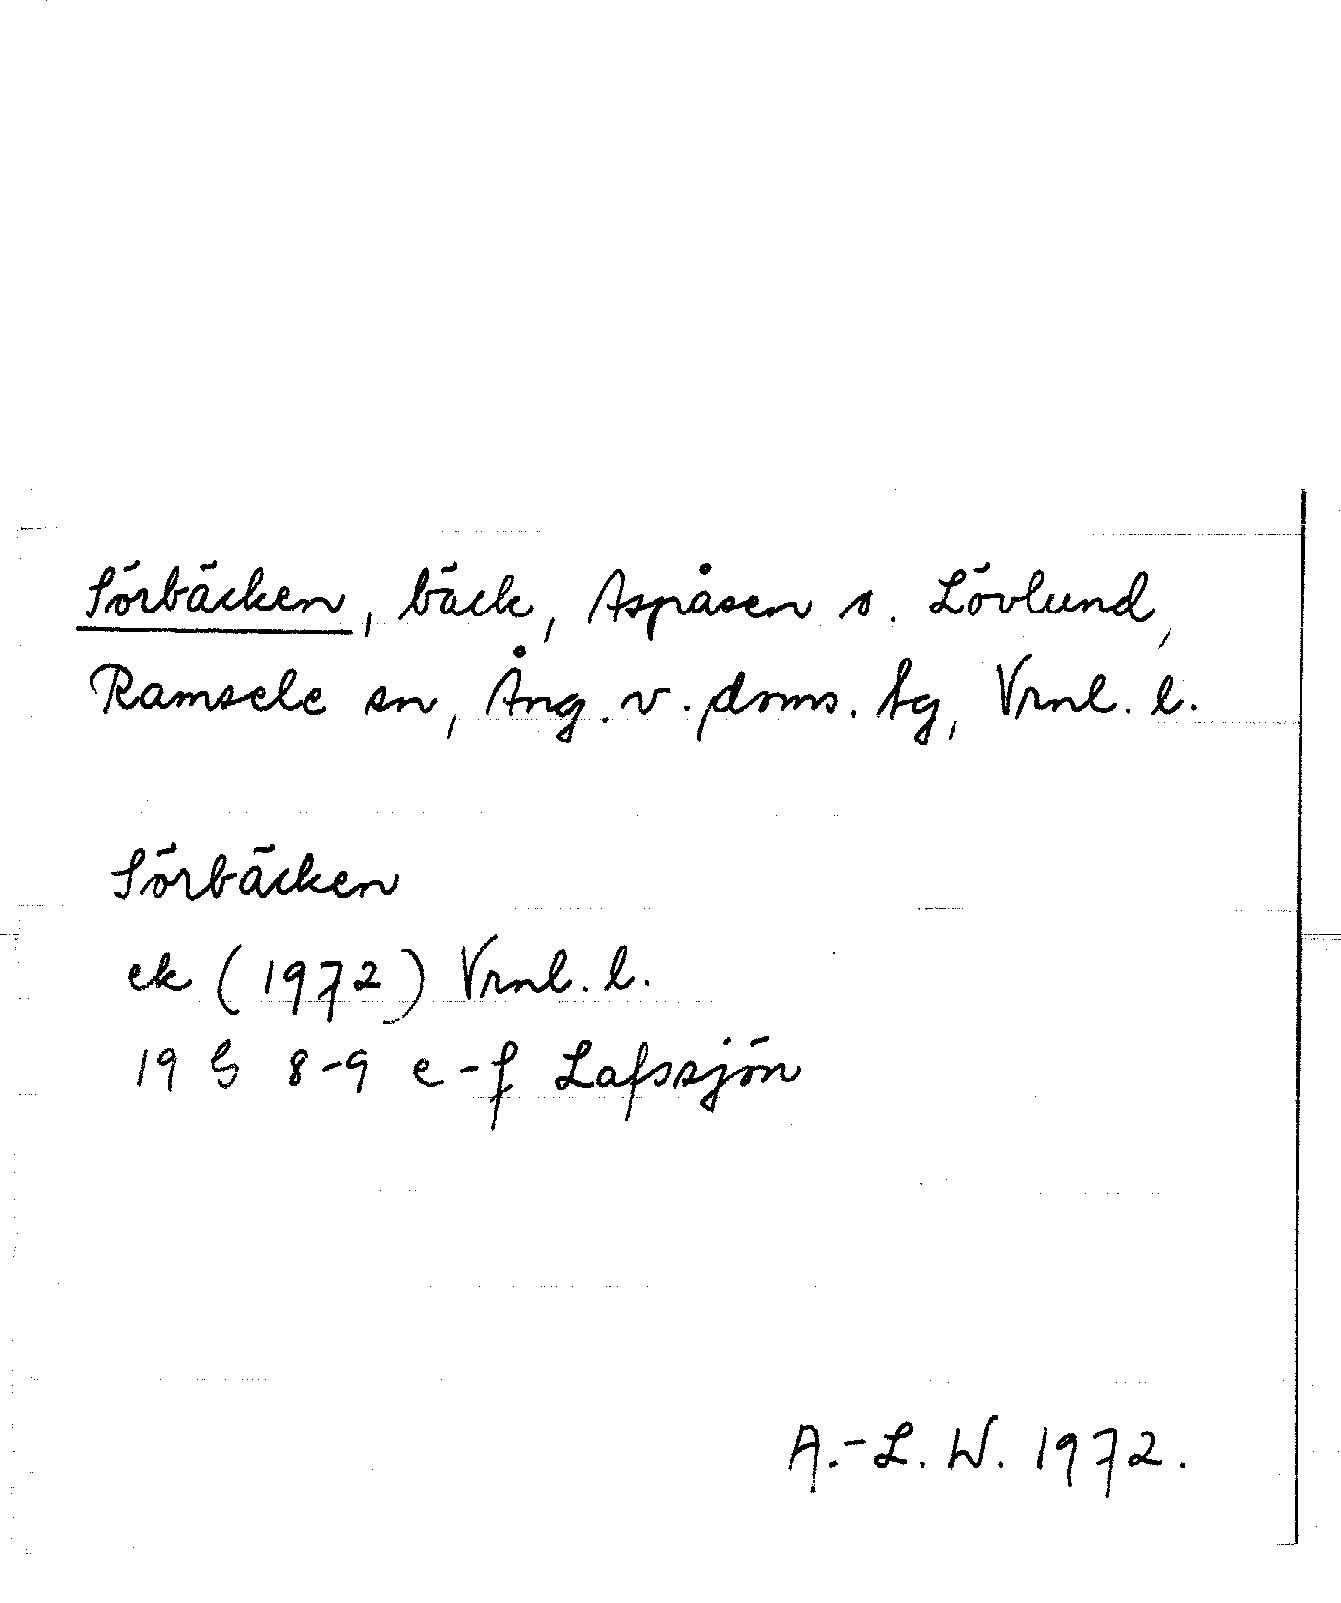 Sörbäcken, bäck, Aspåsen o. Lövlund,
Ramsele sn, Ång. v. doms. tg, Vrnl. l.
Sörbäcken
ek (1972) Vrnl. l.
19 G 8-9 e-f Lafssjön
A.-L. W. 1972.